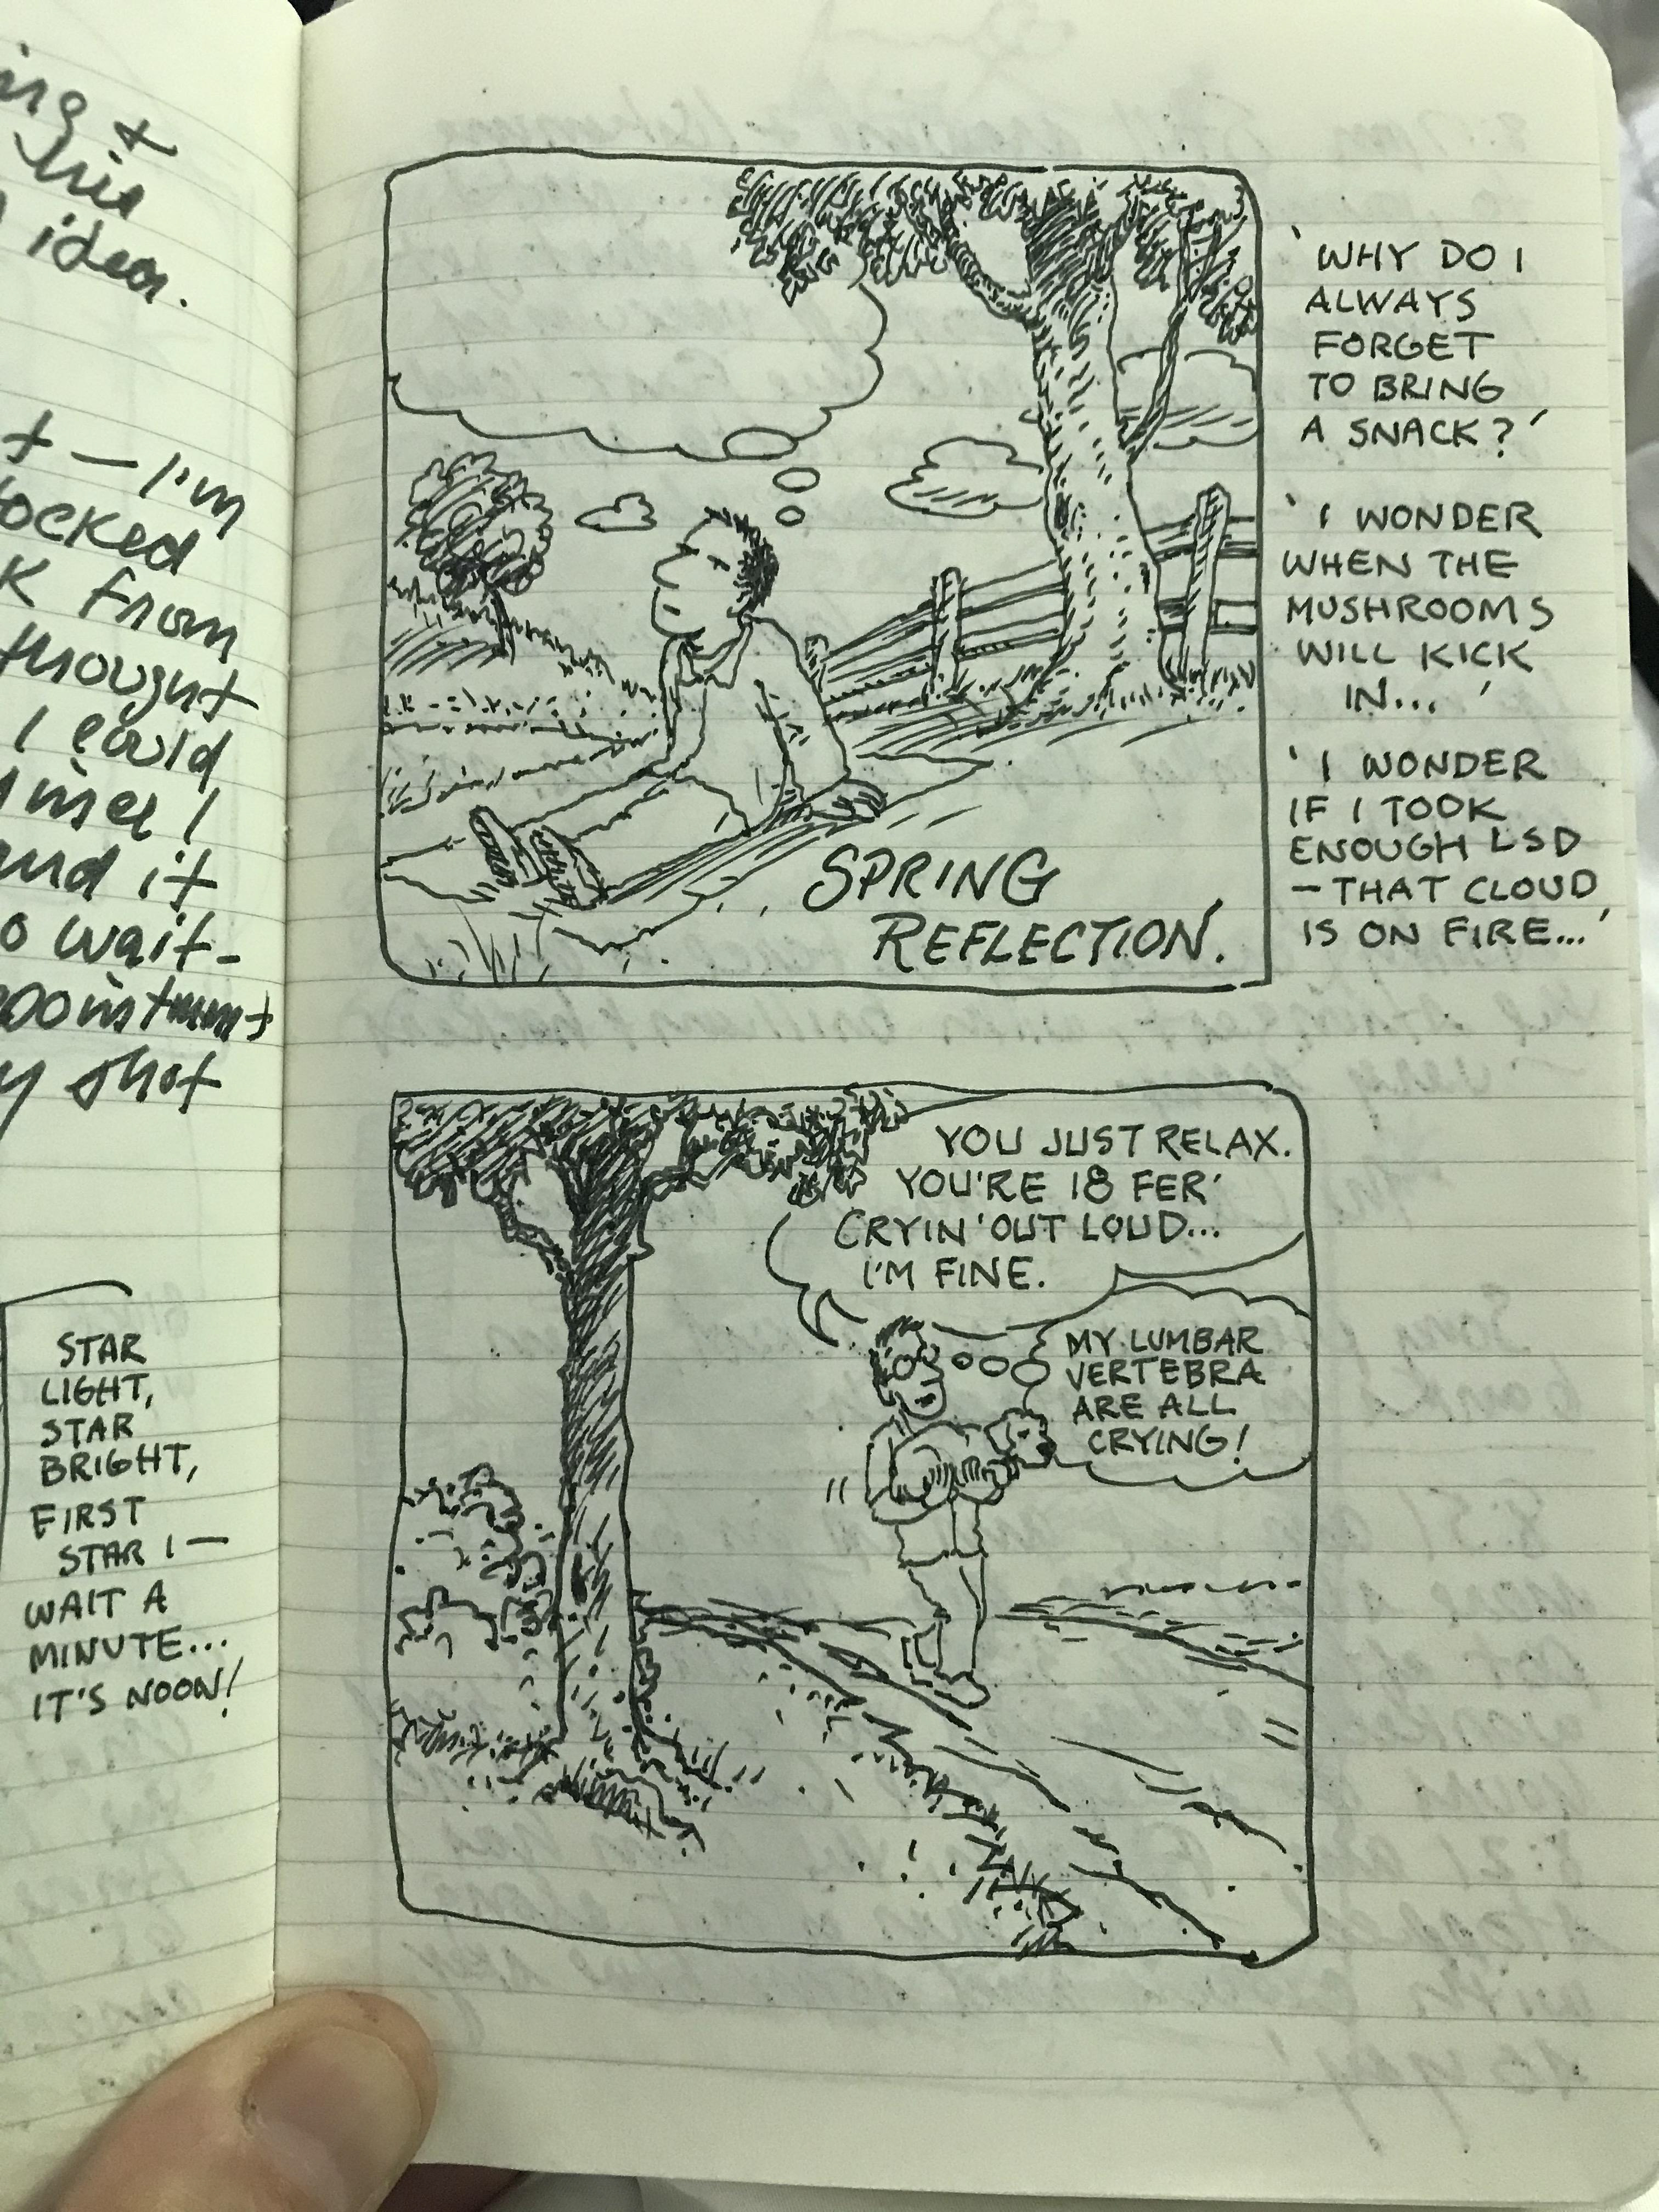 idea.
— I'm
from
thought
I could
and it
wait-
shot
STAR
LIGHT,
STAR
BRIGHT,
FIRST
STAR I —
WAIT A
MINUTE...
IT'S NOON!
SPRING
REFLECTION.
'WHY DO I
ALWAYS
FORGET
TO BRING
A SNACK?'
'I WONDER
WHEN THE
MUSHROOMS
WILL KICK
IN... '
'I WONDER
IF I TOOK
ENOUGH LSD
— THAT CLOUD
IS ON FIRE...'
YOU JUST RELAX.
YOU'RE 18 FER'
CRYIN' OUT LOUD...
I'M FINE.
MY LUMBAR
VERTEBRA
ARE ALL
CRYING!